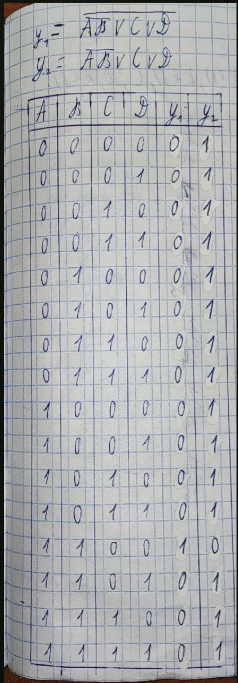 y₁ = A̅B̅ ∨ C̅ ∨ D̅
y₂ = A̅B̅ ∨ C ∨ D
A B C D y₁ y₂
0 0 0 0 0 1
0 0 0 1 0 1
0 0 1 0 0 1
0 0 1 1 0 1
0 1 0 0 0 1
0 1 0 1 0 1
0 1 1 0 0 1
0 1 1 1 0 1
1 0 0 0 0 1
1 0 0 1 0 1
1 0 1 0 0 1
1 0 1 1 0 1
1 1 0 0 1 0
1 1 0 1 0 1
1 1 1 0 0 1
1 1 1 1 0 1